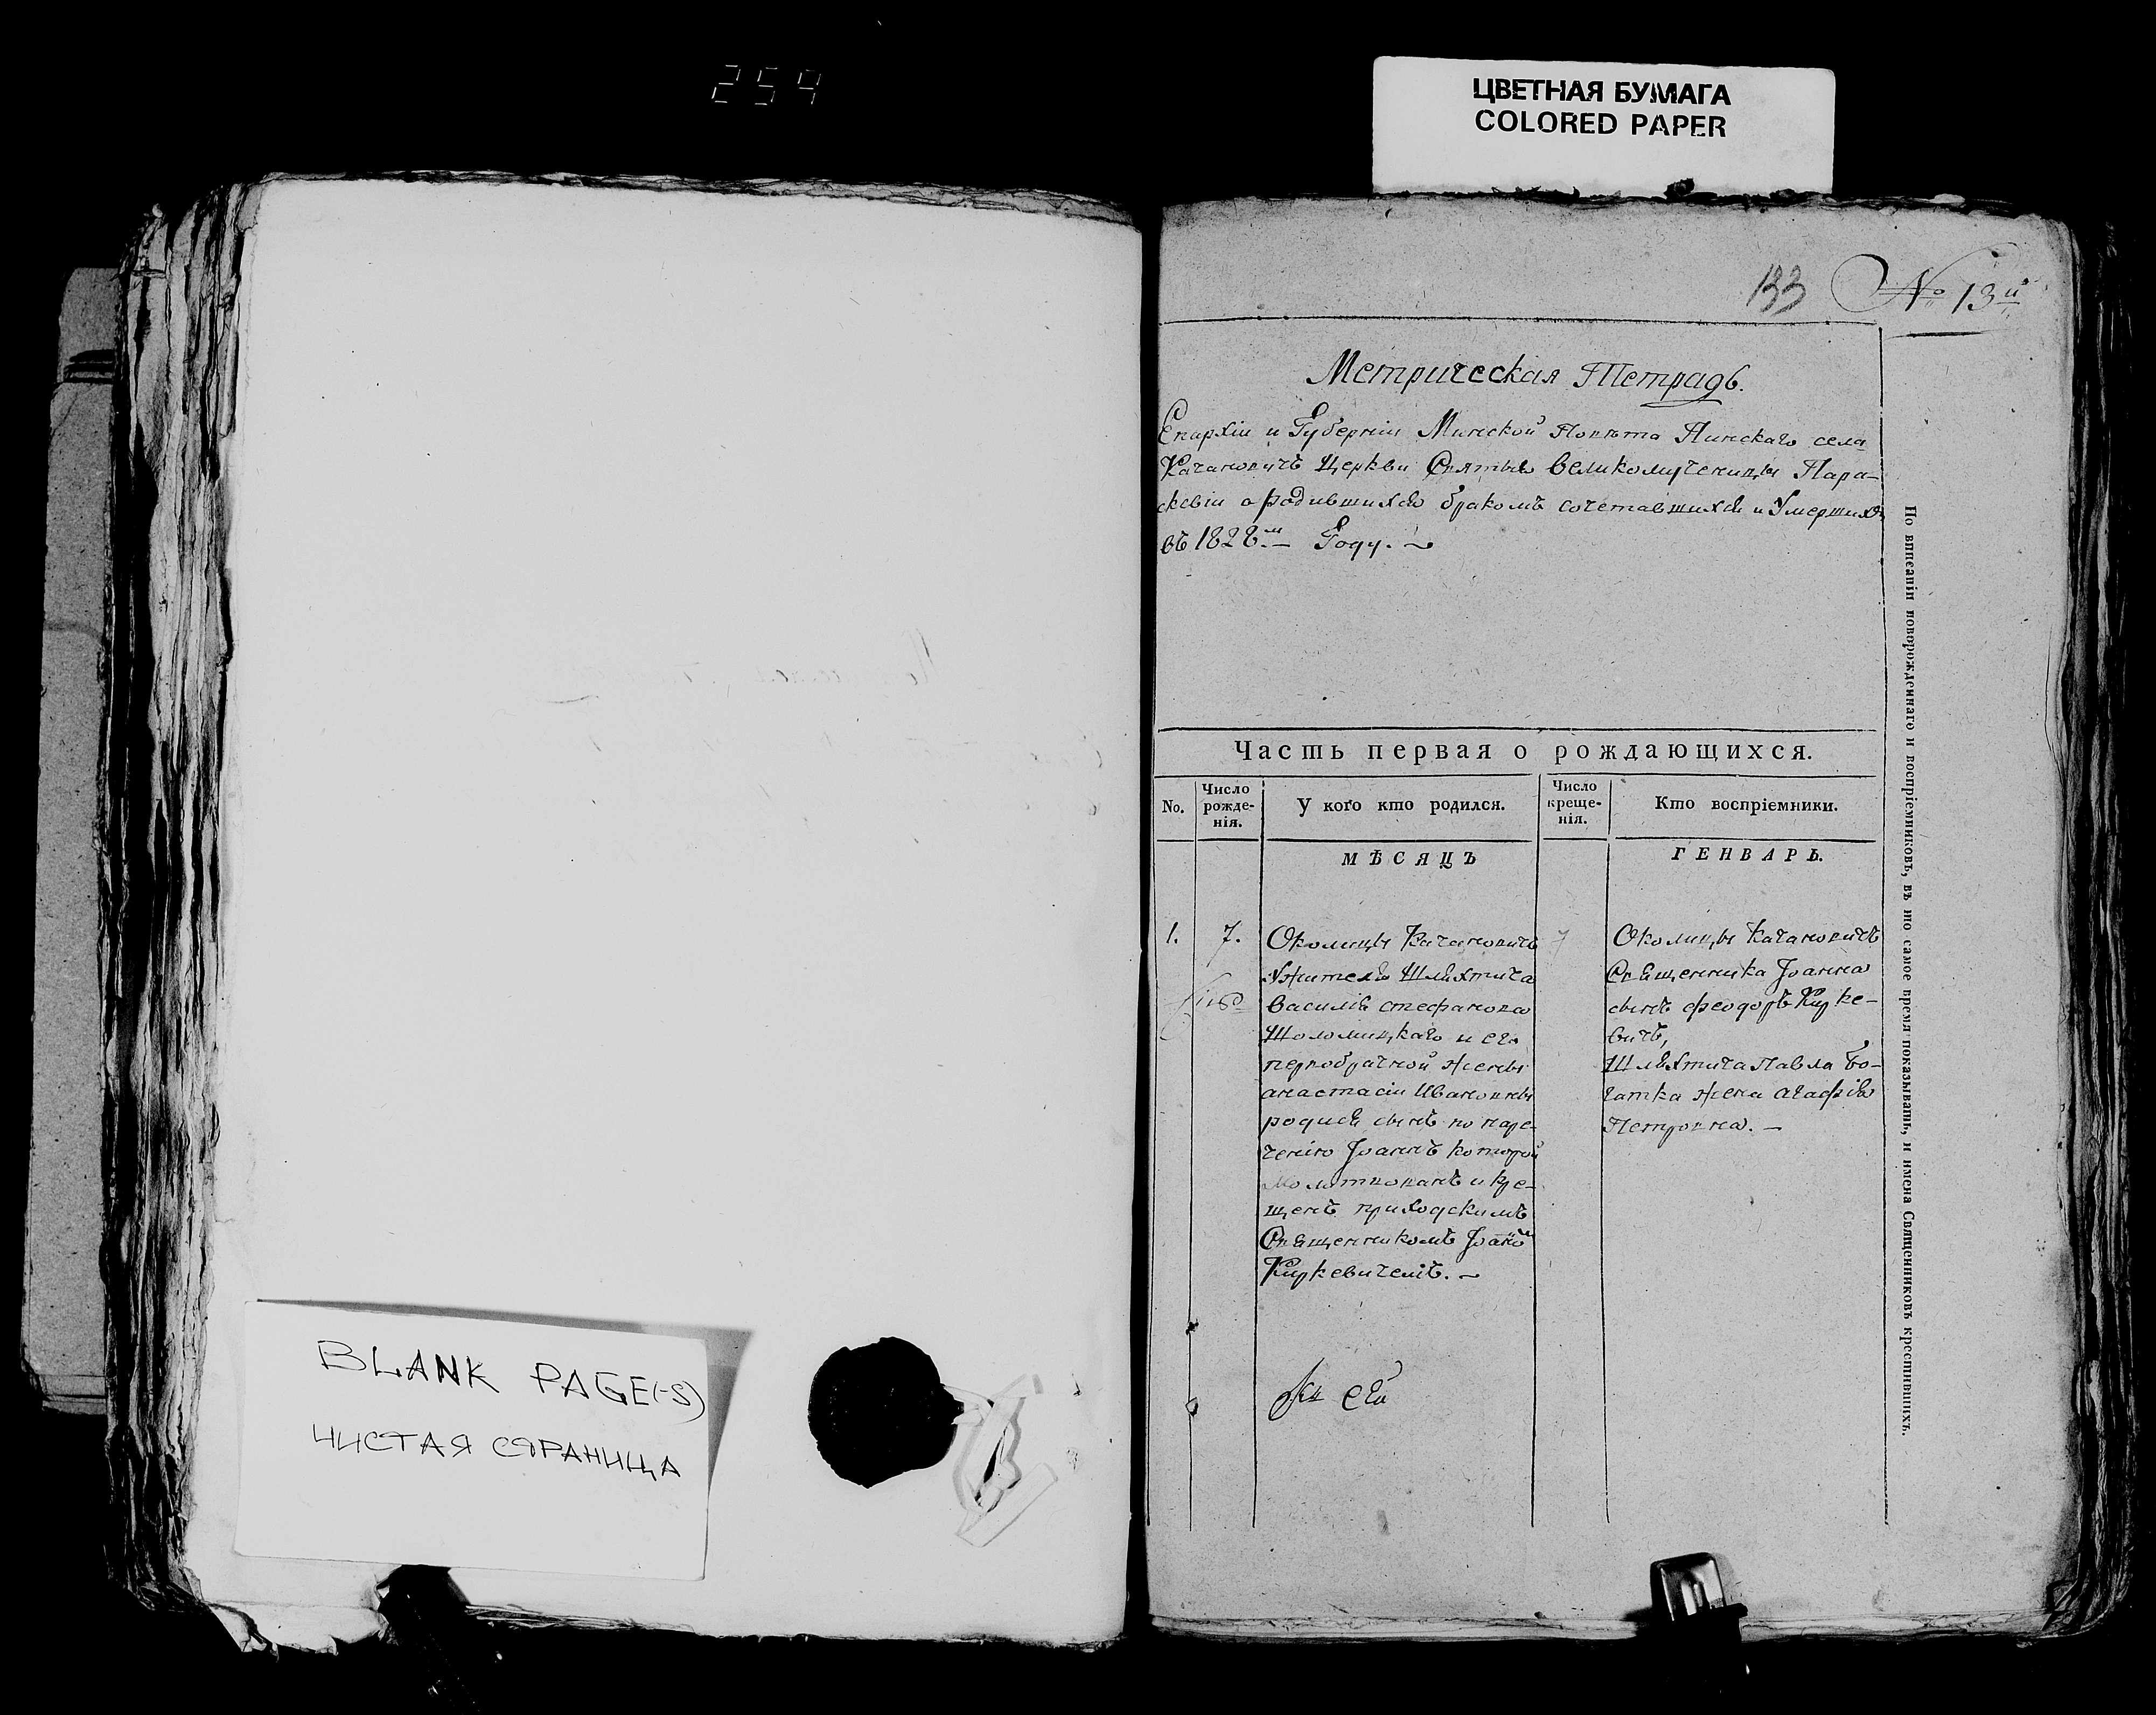 254
ЦВЕТНАЯ БУМАГА
COLORED PAPER
133 № 13й
Метрическая Тетрадь.
Епархіи и Губерніи Минской Повѣта Пинскаго села
Качановичъ Церкви Святыя великомученицы Пара-
скевіи о родившихся бракомъ сочетавшихся и Умершихъ
въ 1828м Году.
Часть первая о рождающихся.
No.
Число рожде-нія.
У кого кто родился.
Число креще-нія.
Кто воспріемники.
МѢСЯЦЪ
ГЕНВАРЬ.
1.
7.
Околицы Качановичъ
жителя Шляхтича
Василія стефанова
Шоломицкаго и его
первобрачной жены
анастасіи Ивановны
родися сынъ по наре-
ченію Іоаннъ которой
Молитвованъ и кре-
щенъ приходскимъ
Священникомъ Іоанномъ
Киркевичемъ.
7
Околицы Качановичъ
Священника Іоанна
сынъ феодоръ Кирке-
вичъ,
Шляхтича Павла Бо-
гатка жена агафія
Петровна.
По вписаніи новорожденнаго и воспріемниковъ, въ то самое время показывать, и имена Священниковъ крестившихъ.
BLANK PAGE(-S)
ЧИСТАЯ СТРАНИЦА